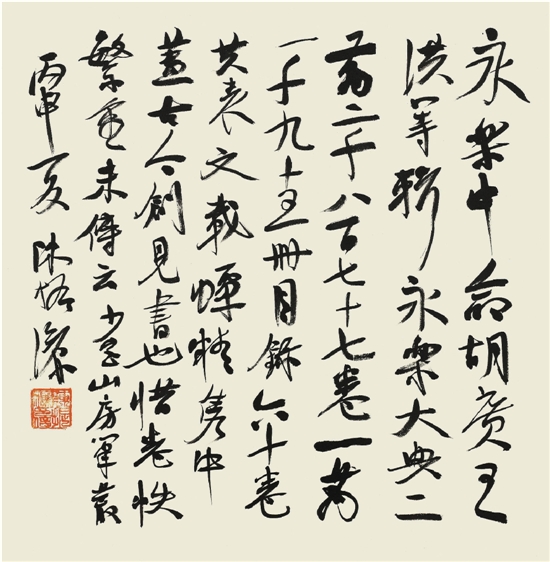 永樂中命胡廣王
洪等輯永樂大典二
萬二千八百七十七卷一萬
一千九十五冊目錄六十卷
其表文載蟫精雋中
蓋古今創見書也惜卷帙
繁重未傳云少室山房筆叢
丙申夏